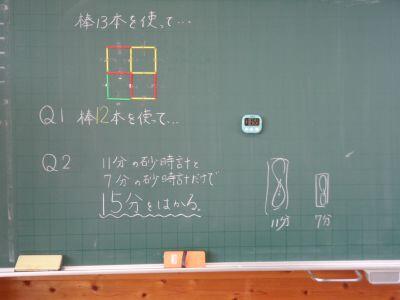 棒13本を使って…
Q1 棒12本を使って…
Q2 11分の砂時計と
7分の砂時計だけで
15分をはかる。
11分 7分